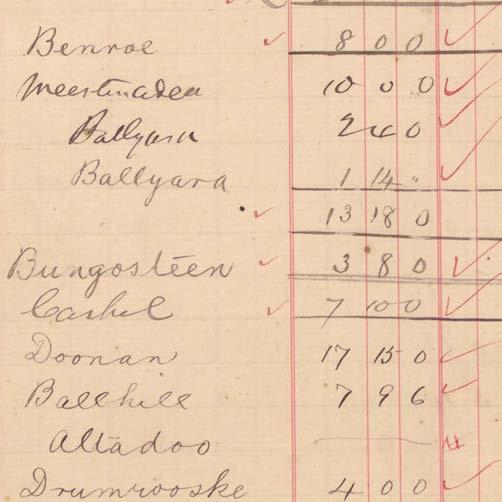 Benroe 8 0 0
10 0 0
Ballyara 2 4 0
Ballyara 1 14 "
13 18 0
Bungosteen 3 8 0
Cashel 7 10 0
Doonan 17 15 0
Ballhill 7 9 6
Altadoo
Drumrooske 4 0 0